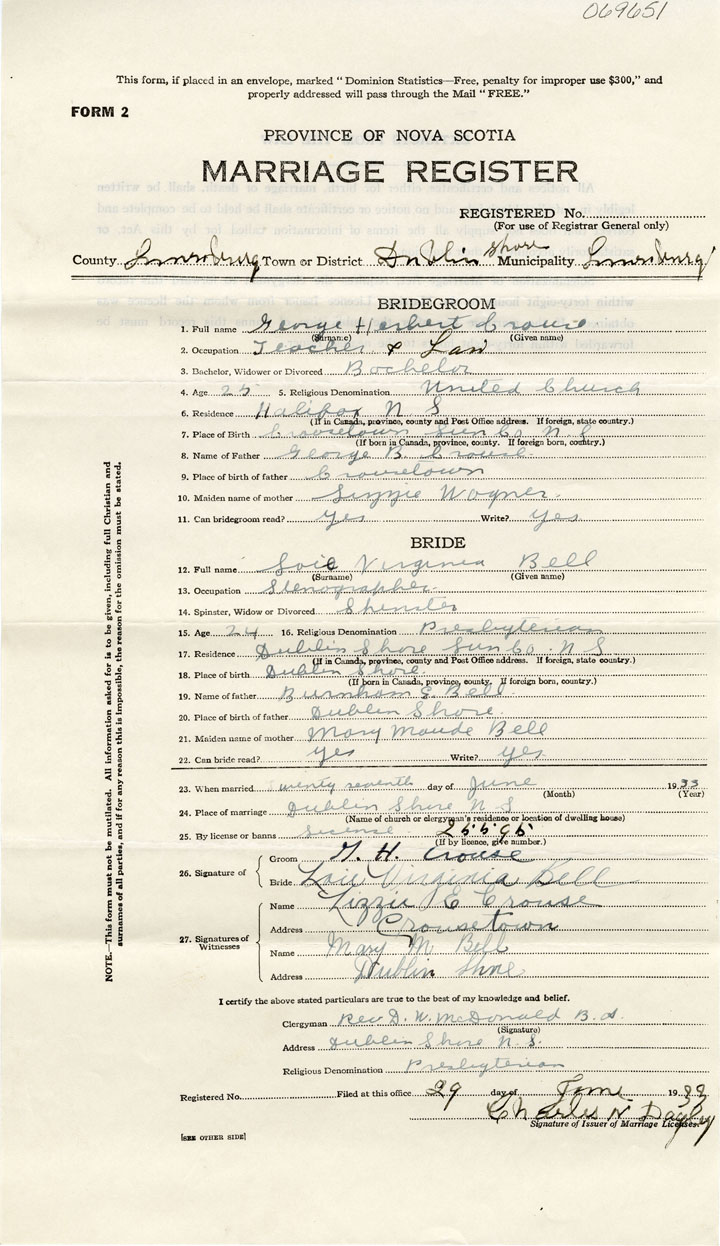 069651
This form, if placed in an envelope, marked "Dominion Statistics—Free, penalty for improper use $300," and
properly addressed will pass through the Mail "FREE."
FORM 2
PROVINCE OF NOVA SCOTIA
MARRIAGE REGISTER
REGISTERED No.
(For use of Registrar General only)
County Lunenburg Town or District Dublin Shore Municipality Lunenburg
BRIDEGROOM
1. Full name George Herbert Crouse
(Surname) (Given name)
2. Occupation Teacher & Law
3. Bachelor, Widower or Divorced Bachelor
4. Age 25 5. Religious Denomination United Church
6. Residence Halifax N S
(If in Canada, province, county and Post Office address. If foreign, state country.)
7. Place of Birth Crousetown Lun Co. N. S
(If born in Canada, province, county. If foreign born, country.)
8. Name of Father George B. Crouse
9. Place of birth of father Crousetown
10. Maiden name of mother Lizzie Wagner.
11. Can bridegroom read? yes Write? yes
BRIDE
12. Full name Loie Virginia Bell
(Surname) (Given name)
13. Occupation Stenographer
14. Spinster, Widow or Divorced Spinster
15. Age 24 16. Religious Denomination Presbyterian
17. Residence Dublin Shore Lun Co. N S
(If in Canada, province, county and Post Office address. If foreign, state country.)
18. Place of birth Dublin Shore.
(If born in Canada, province, county. If foreign born, country.)
19. Name of father Burnham E Bell
20. Place of birth of father Dublin Shore.
21. Maiden name of mother Mary Maude Bell
22. Can bride read? yes Write? yes
23. When married twenty seventh day of June 1933
(Month) (Year)
24. Place of marriage Dublin Shore N S
(Name of church or clergyman's residence or location of dwelling house)
25. By license or banns License 25595
(If by licence, give number.)
26. Signature of Groom G. H. Crouse
Bride Loie Virginia Bell
27. Signatures of Witnesses
Name Lizzie E Crouse
Address Crousetown
Name Mary M Bell
Address Dublin Shore
I certify the above stated particulars are true to the best of my knowledge and belief.
Clergyman Rev D. W. McDonald B.A.
(Signature)
Address Dublin Shore N. S.
Religious Denomination Presbyterian
Registered No. Filed at this office 29 day of June 1933
Charles N Dagley
Signature of Issuer of Marriage Licenses.
[SEE OTHER SIDE]
NOTE.—This form must not be mutilated. All information asked for is to be given, including full Christian and
surnames of all parties, and if for any reason this is impossible, the reason for the omission must be stated.